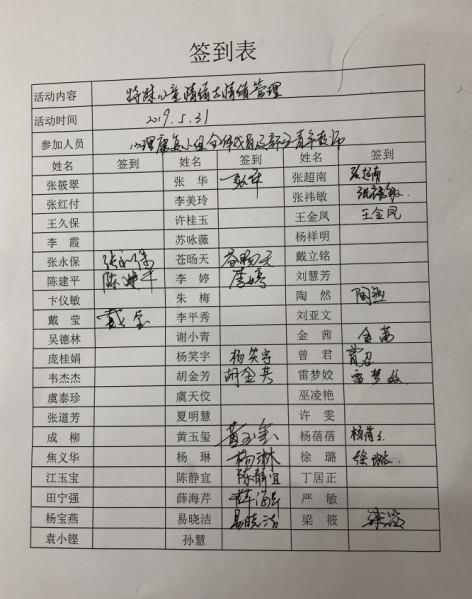 签到表
活动内容 特殊儿童情绪与情绪管理
活动时间 2019.5.31
参加人员 心理康复小组全体成员及部分青年教师
姓名 签到 姓名 签到 姓名 签到
张筱翠 张华 张华 张超南 张超南
张红付 李美玲 张祎敏 张祎敏
王久保 许桂玉 王金凤 王金凤
李霞 苏咏薇 杨祥明
张永保 张永保 苍旸天 苍旸天 戴立铭
陈建平 陈建平 李婷 李婷 刘慧芳
卞仪敏 朱梅 陶然 陶然
戴莹 戴莹 李平秀 刘亚文
吴德林 谢小青 金茜 金茜
庞桂娟 杨笑宇 杨笑宇 曾君 曾君
韦杰杰 胡金芳 胡金芳 雷梦姣 雷梦姣
虞泰珍 虞天佼 巫凌艳
张道芳 夏明慧 许雯
成柳 黄玉玺 黄玉玺 杨蓓蓓 杨蓓蓓
焦义华 杨琳 杨琳 徐璐 徐璐
江玉宝 陈静宜 陈静宜 丁居正
田宁强 薛海芹 薛海芹 严敏
杨宝燕 易晓洁 易晓洁 梁筱 梁筱
袁小铿 孙慧